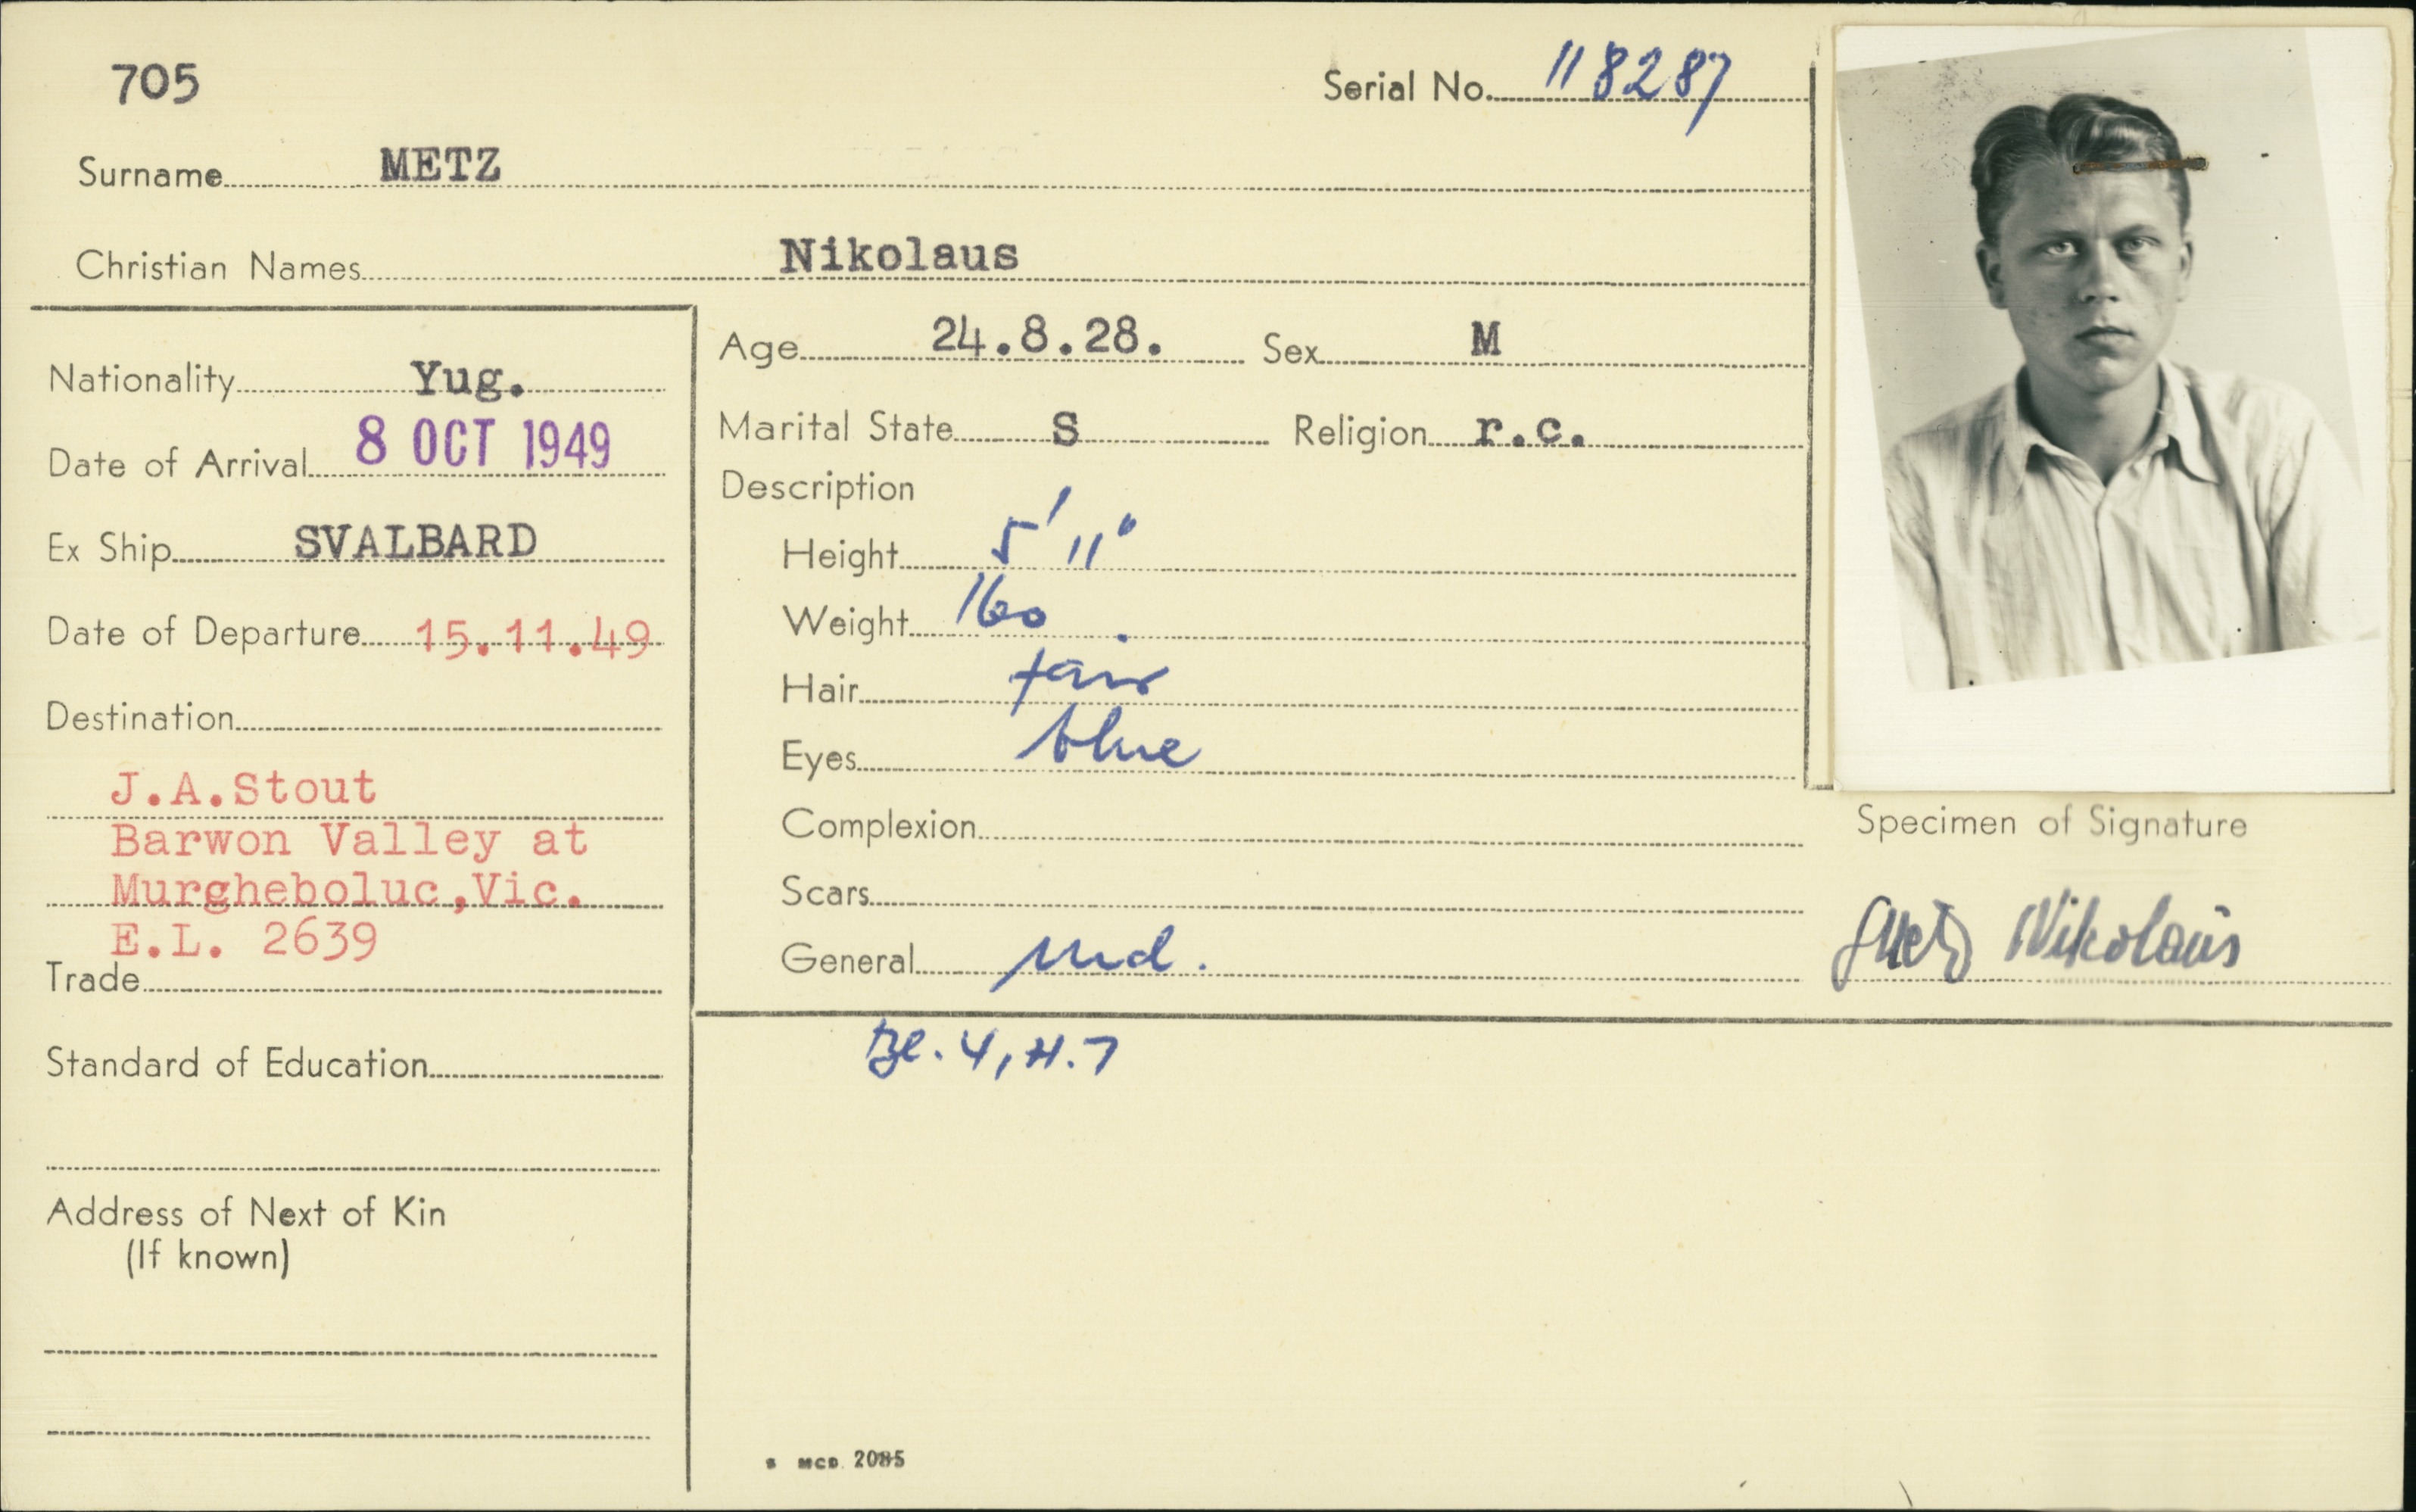 705
Serial No. 118287
Surname METZ
Christian Names Nikolaus
Nationality Yug.
Date of Arrival 8 OCT 1949
Ex Ship SVALBARD
Date of Departure 15.11.49
Destination
J.A.Stout
Barwon Valley at
Murgheboluc,Vic.
E.L. 2639
Trade
Standard of Education
Address of Next of Kin
(If known)
Age 24.8.28. Sex M
Marital State S Religion r.c.
Description
Height 5' 11"
Weight 160
Hair fair
Eyes blue
Complexion
Scars
General Med.
Bl. 4, H. 7
Specimen of Signature
Metz Nikolaus
S MCD 2085